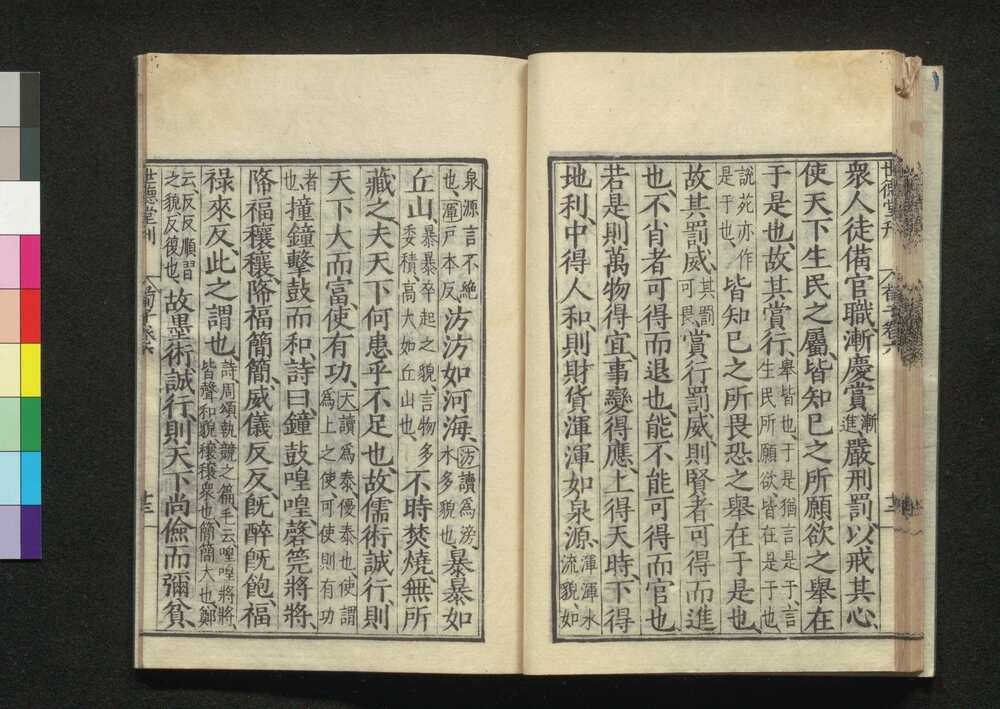 世德堂刊 荀子卷六
衆人徒備官職漸慶賞漸進嚴刑罰以戒其心
使天下生民之屬皆知己之所願欲之舉在
于是也故其賞行舉皆也于是猶言是于言生民所願欲皆在是于也
說苑亦作是于也皆知己之所畏恐之舉在于是也
故其罰威其罰可畏賞行罰威則賢者可得而進
也不肖者可得而退也能不能可得而官也
若是則萬物得宜事變得應上得天時下得
地利中得人和則財貨渾渾如泉源渾渾水流貌如
泉源言不絶也渾戸本反汸汸如河海汸讀爲滂水多貌也暴暴如
丘山暴暴卒起之貌言物多委積高大如丘山也不時焚燒無所
藏之夫天下何患乎不足也故儒術誠行則
天下大而富使有功大讀爲泰優泰也使謂爲上之使可使則有功
者也撞鐘擊鼓而和詩曰鐘鼓喤喤磬筦將將
降福穰穰降福簡簡威儀反反旣醉旣飽福
祿來反此之謂也詩周頌執競之篇毛云喤喤將將皆聲和貌穰穰衆也簡簡大也鄭
云反反順習之貌反復也故墨術誠行則天下尚儉而彌貧
世德堂刊 荀子卷六 十三